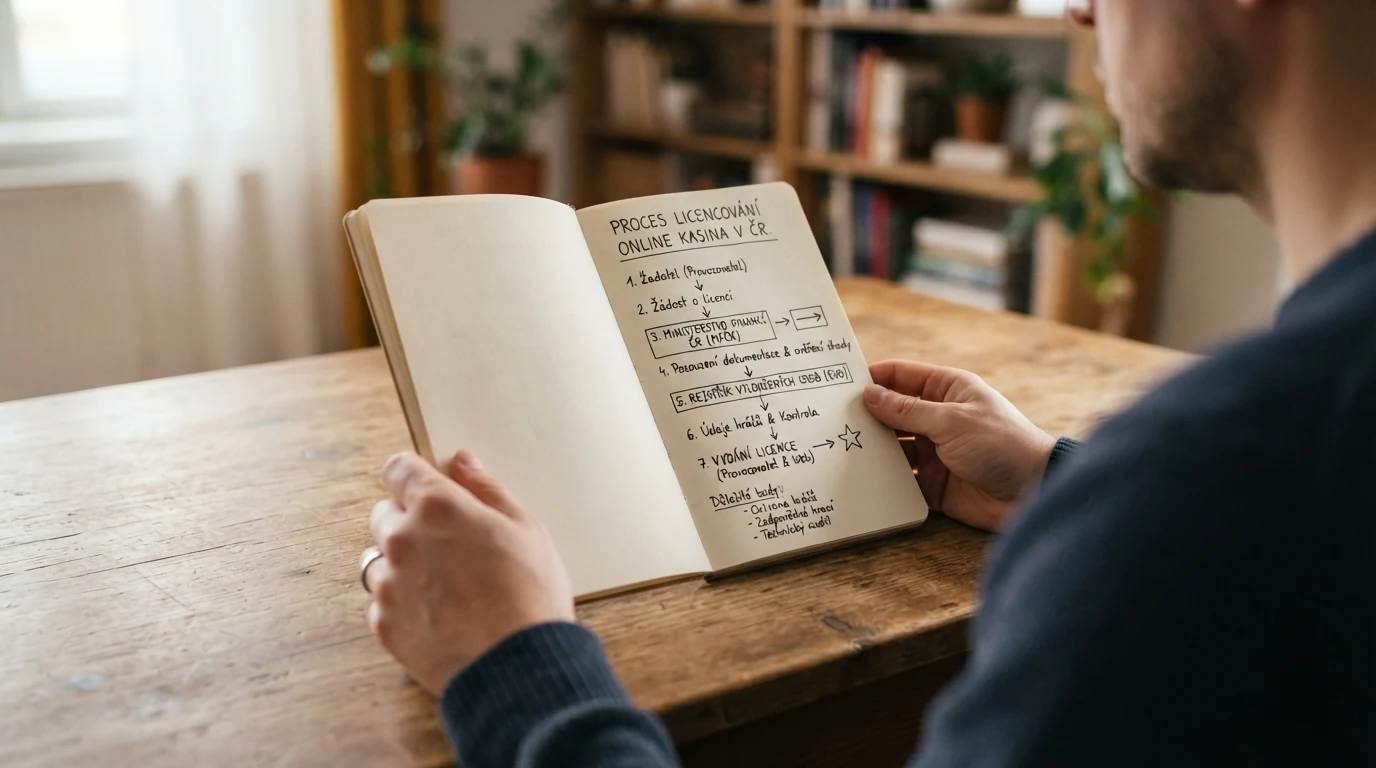 PROCES LICENCOVÁNÍ
ONLINE KASINA V ČR.
1. Žadatel (Provozovatel)
2. Žádost o licenci
3. MINISTERSTVO
ČR (MFČR)
4. dokumentace &
5. REJSTŘÍK
6. Údaje hráčů & Kontrola
7. VYDÁNÍ LICENCE
(Provozovatel &
Důležité body:
- Ochrana hráčů
- Zodpovědné hraní
- Technický audit